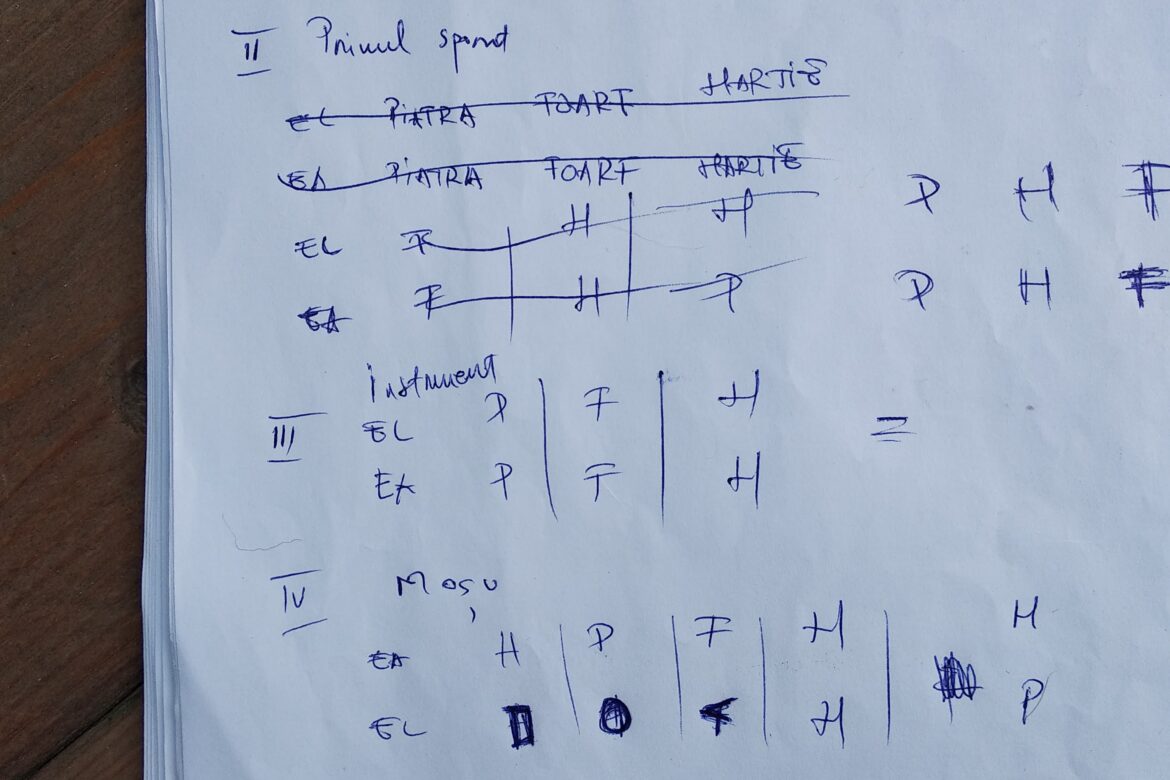 II Primul spond
EL PIATRA FOARF HARTIE
EA PIATRA FOARF HARTIE
EL F H H P H F
EA F H P P H F
III Instrument
EL P F H =
EA P F H
IV Moșu
EA H P F H H
EL H P